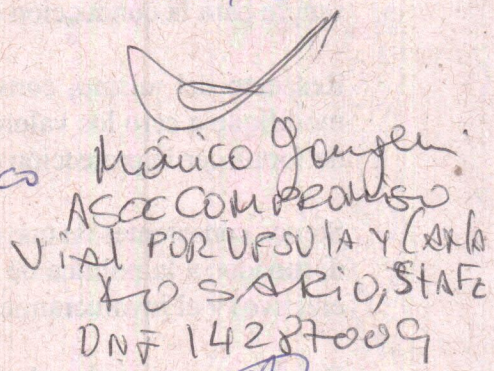 Mónica
ASOC COMPROMISO
VIAL POR URSULA Y CARLA
ROSARIO, STA FE
DNI 14287009